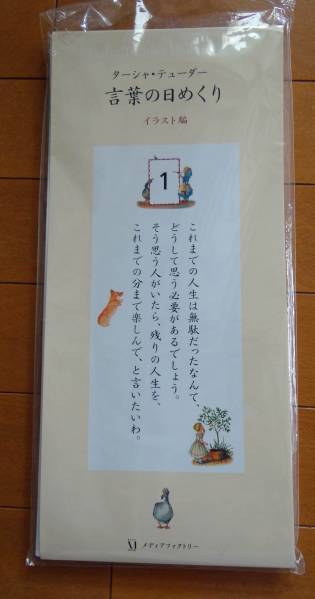 ターシャ・テューダー
言葉の日めくり
イラスト編
1
これまでの人生は無駄だったなんて、
どうして思う必要があるでしょう。
そう思う人がいたら、残りの人生を、
これまでの分まで楽しんで、と言いたいわ。
メディアファクトリー